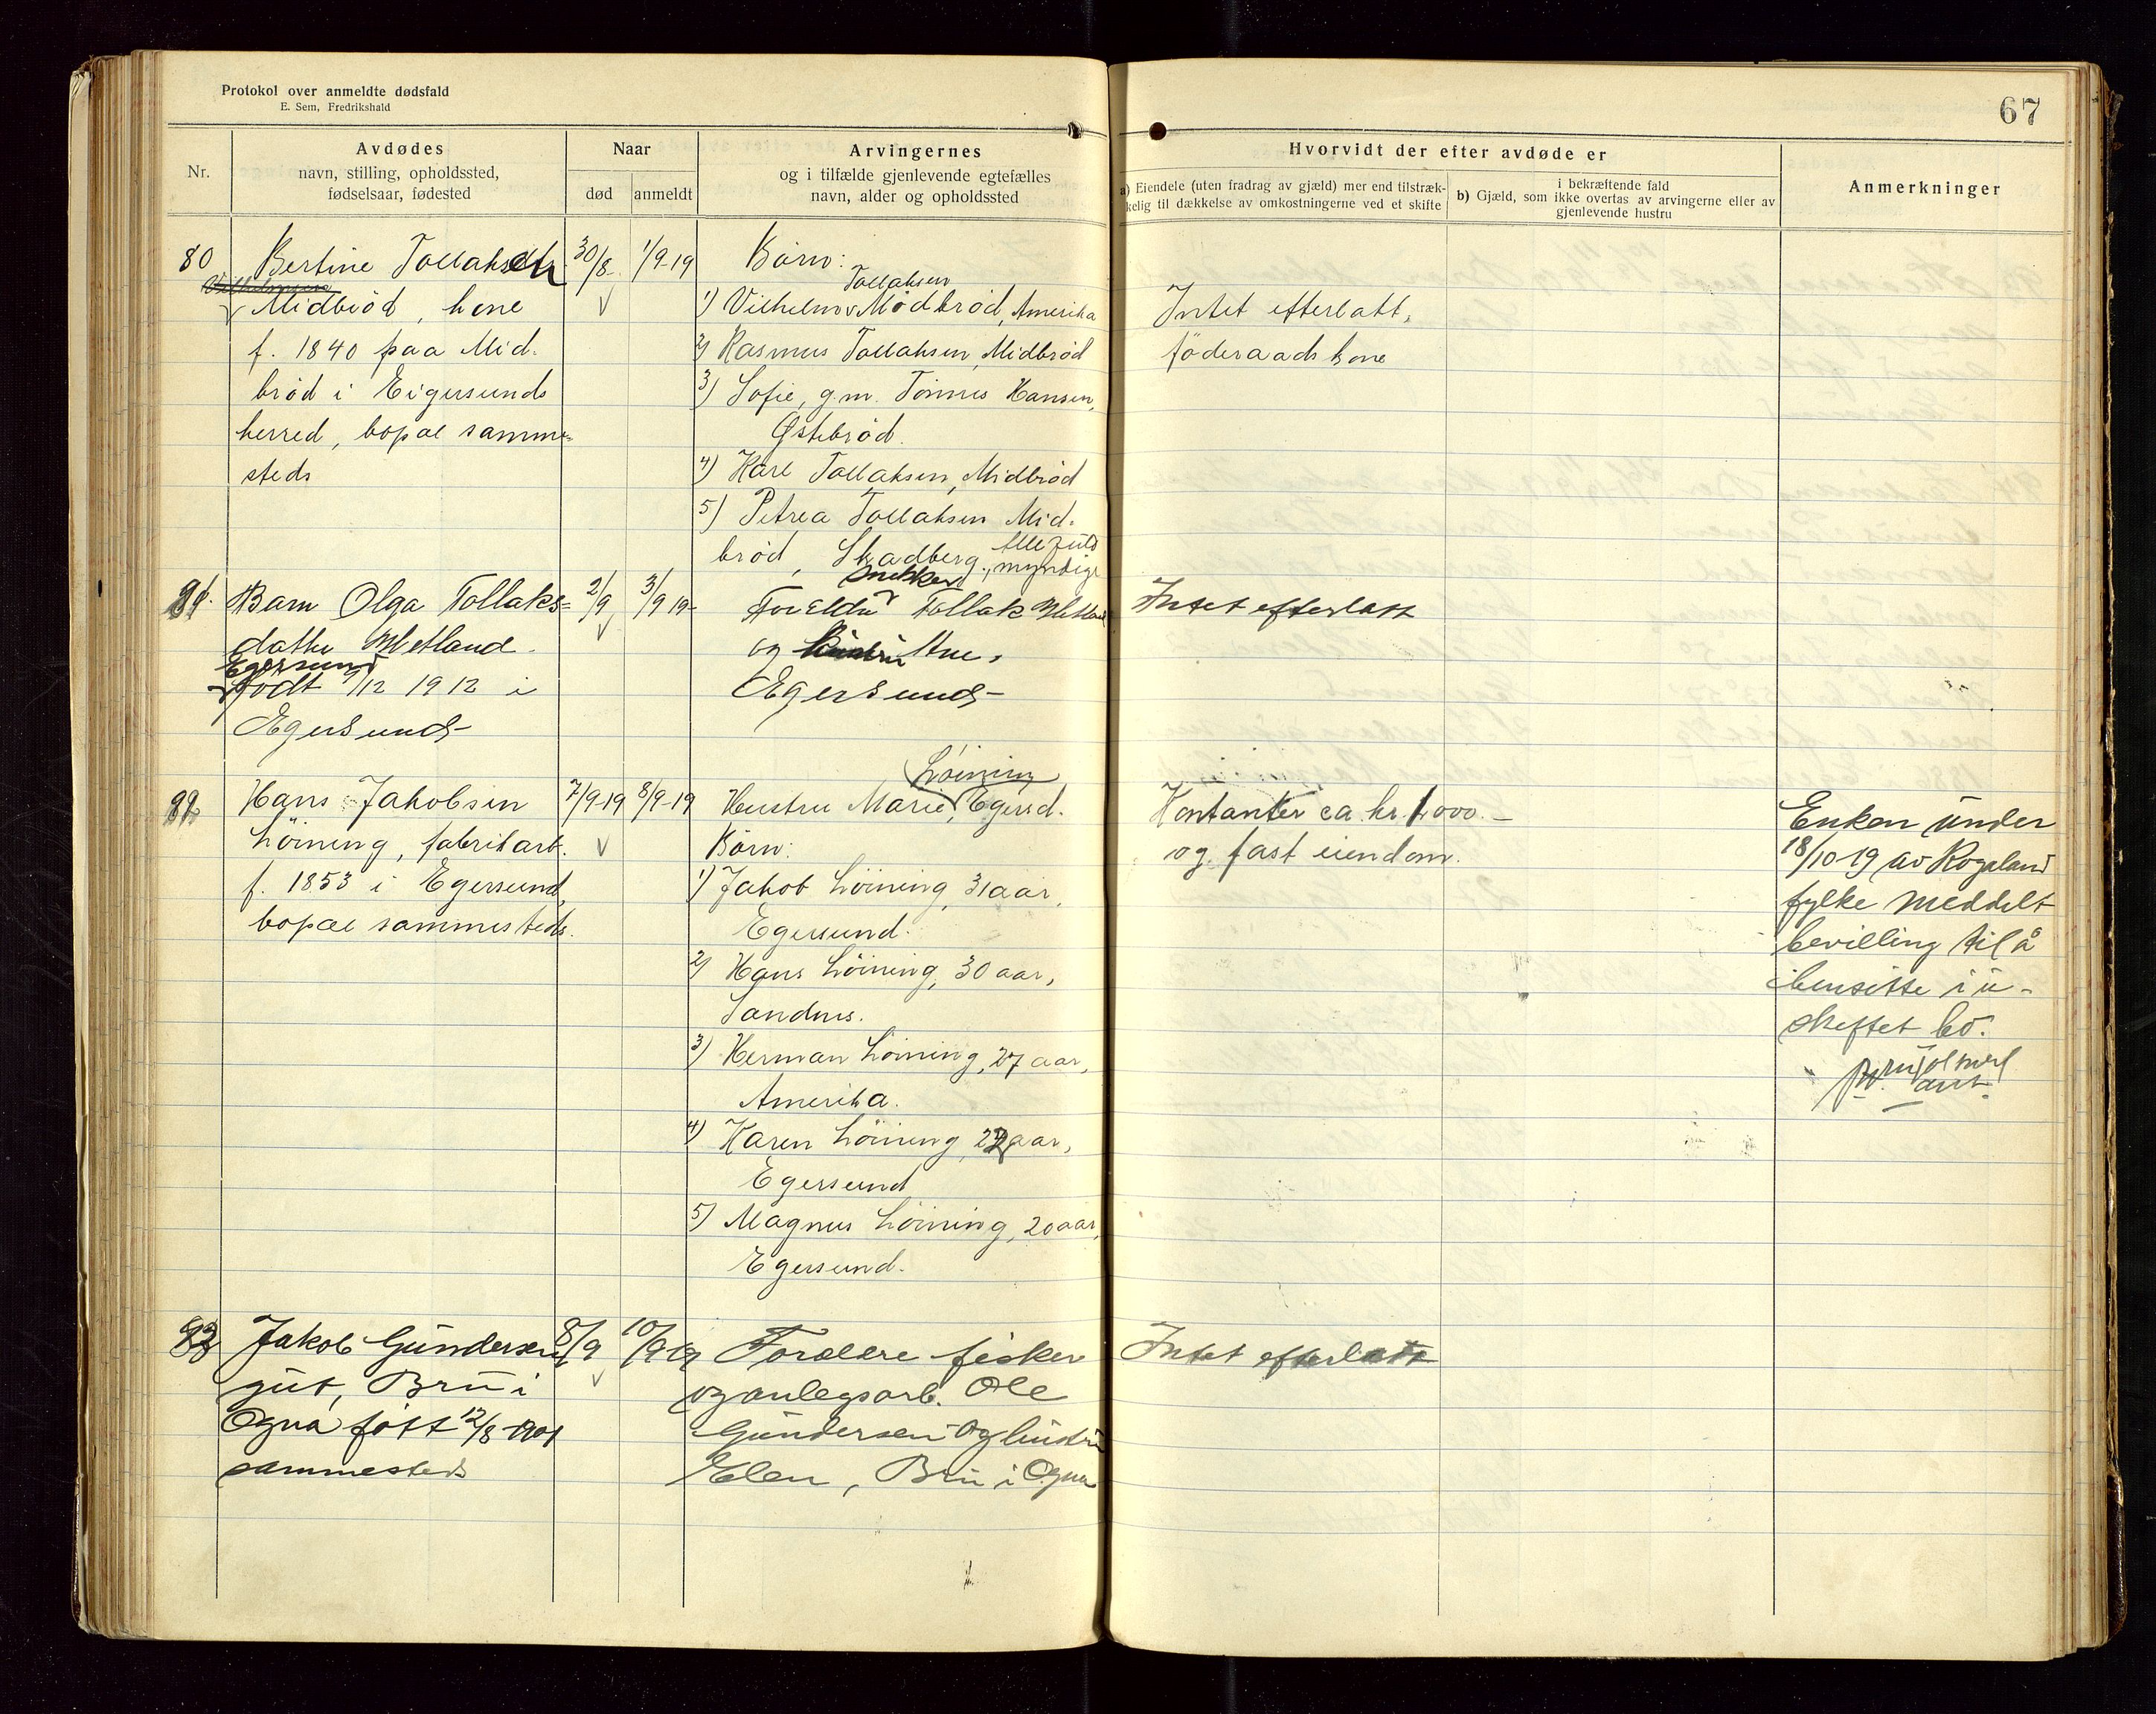 Protokol over anmeldte dødsfald
E. Sem, Fredrikshald
67
Nr.
Avdødes
navn, stilling, opholdssted,
fødselsaar, fødested
Naar
død
anmeldt
Arvingernes
og i tilfælde gjenlevende egtefælles
navn, alder og opholdssted
Hvorvidt der efter avdøde er
a) Eiendele (uten fradrag av gjæld) mer end tilstræk-
kelig til dækkelse av omkostningerne ved et skifte
i bekræftende fald
b) Gjæld, som ikke overtas av arvingerne eller av
gjenlevende hustru
Anmerkninger
80
Bertine Tollaksen
Vilhelmsen
Midbrød, kone
f. 1840 paa Mid-
brød i Eigersunds
herred, bopæl samme-
steds
30/8
1/9-19
Børn:
Tollaksen
1) Vilhelm Midbrød, Amerika
2) Rasmus Tollaksen, Midbrød
3) Sofie, g.m. Tønnes Hansen,
Østebrød.
4) Karl Tollaksen, Midbrød
5) Petrea Tollaksen Mid-
brød, Skadberg. Alle fuld
myndige
Intet efterlatt,
føderaadskone
81.
Barn Olga Tollaks=
datter Hetland
Egersund
født 9/12 1912 i
Egersund
2/9
3/9 19
snekker
Foreldre Tollak Hetland
og Hustru
Egersund
Intet efterlatt
82
Hans Jakobsen
Löining, fabrikarb.
f. 1853 i Egersund,
bopæl sammesteds.
7/9-19
8/9-19
Löining
Hustru Marie, Egersd.
Børn:
1) Jakob Löining, 31 aar,
Egersund.
2) Hans Löining, 30 aar,
Sandnes.
3) Herman Löining, 27 aar,
Amerika.
4) Karen Löining, aar,
Egersund
5) Magnus Löining, 20 aar,
Egersund.
Kontanter ca. kr. 1.000.-
og fast eiendom.
Enken under
18/10-19 av Rogaland
fylke meddelt
bevilling til å
hensitte i u-
skiftet bo.
83
Jakob Gundersen
gut, Bru i
Ogna født 12/8-1901
sammesteds
8/9
10/9 19
Forældre fisker
og anlegsarb. Ole
Gundersen og hustru
Elen, Bru i Ogna
Intet efterlatt